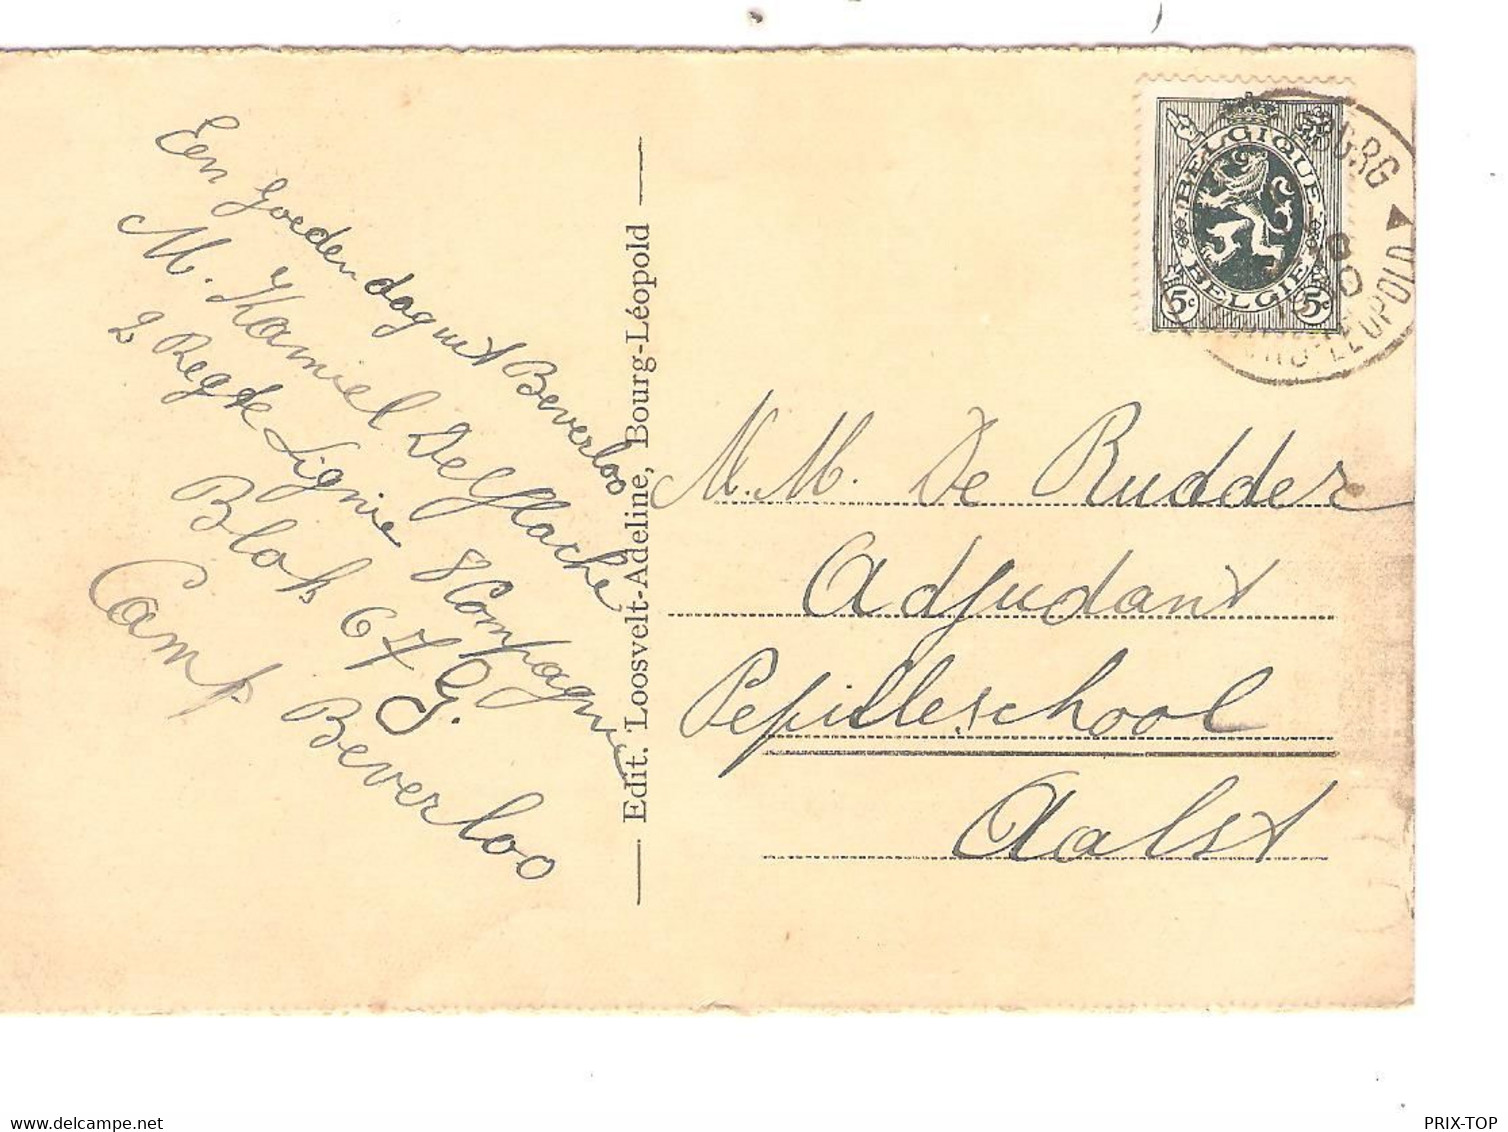 Een Goeden dag uit Beverloo
M. Kamiel Delflache
2 Regte Lignie 8 Compagnie
Blok 67 G.
Camp Beverloo
Edit. Loosvelt-Adeline, Bourg-Léopold
BELGIQUE
BELGIE
5c 5c
BURG
LEOPOLD
M. M. De Rudder
Adjudant
Pepilleschool
Aalst
www.delcampe.net
PRIX-TOP